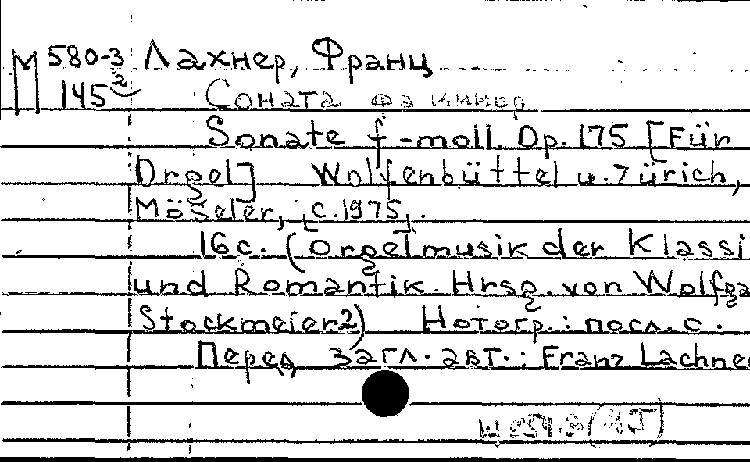 М 580-3 Лахнер, Франц
145² Соната фа минор
Sonate f-moll. Op. 175 [Für
Orgel] Wolfenbüttel u. Zürich,
Möseler, [c. 1975].
16 с. (Orgelmusik der Klassi
und Romantik. Hrsg. von Wolfga
Stockmeier 2) Нотогр.: посл. с.
Перед загл. авт.: Franz Lachne